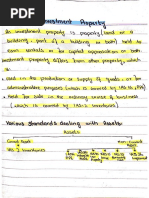 Investment Property
An investment property is property (land or a
building, part of a building or both) held to
earn rentals or for capital appreciation or both.
Investment property differs from other property, which
used in the production or supply of goods or for
administrative purposes (which is covered by IAS 16,
Held for sale in the ordinary course of business
(which is covered by IAS 2 Inventories)
Various Standards dealing with Assets
Assets
Current Asset
Non Current
Asset
IAS 2 Inventories